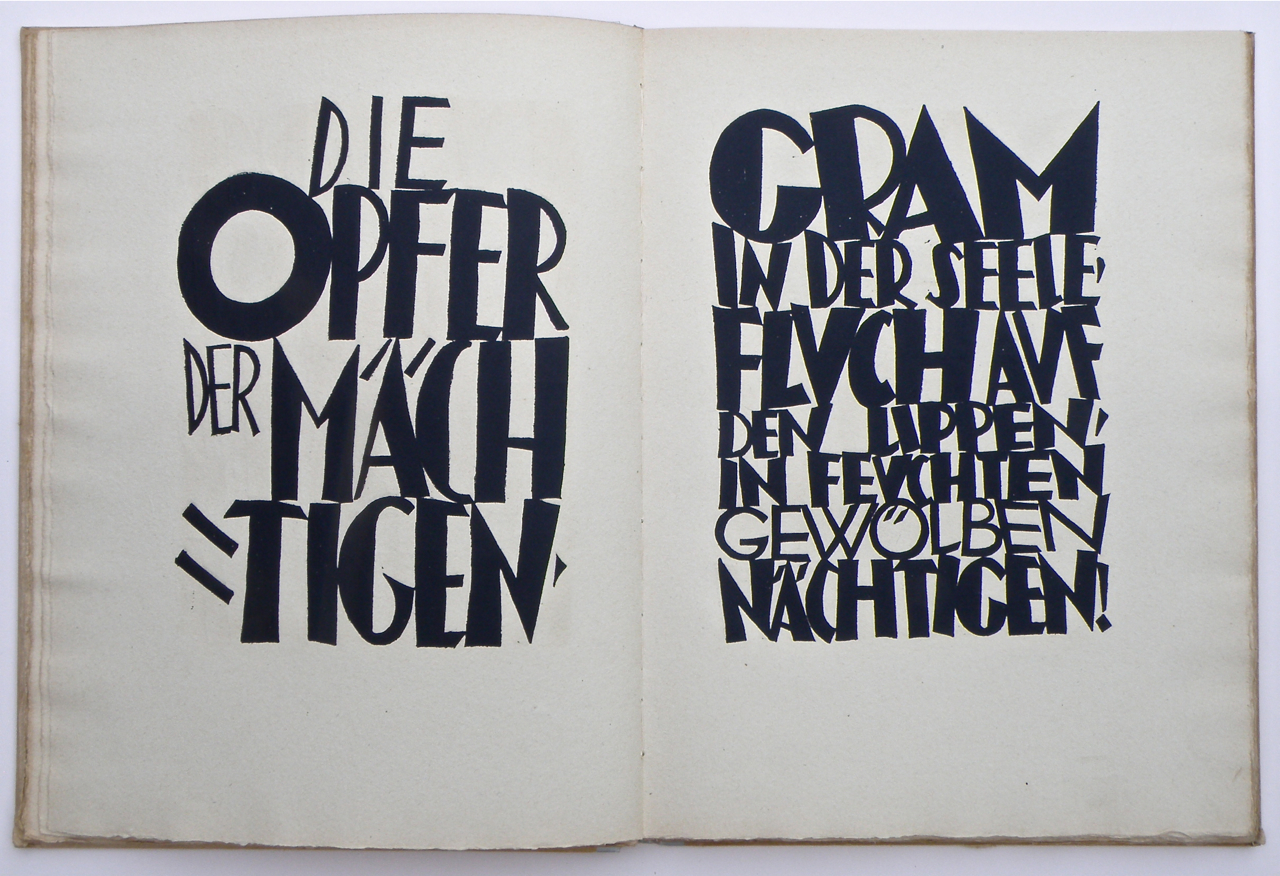 DIE
OPFER
DER MÄCH
=TIGEN,
GRAM
IN DER SEELE,
FLVCH AVF
DEN LIPPEN,
IN FEVCHTEN
GEWÖLBEN
NÄCHTIGEN!